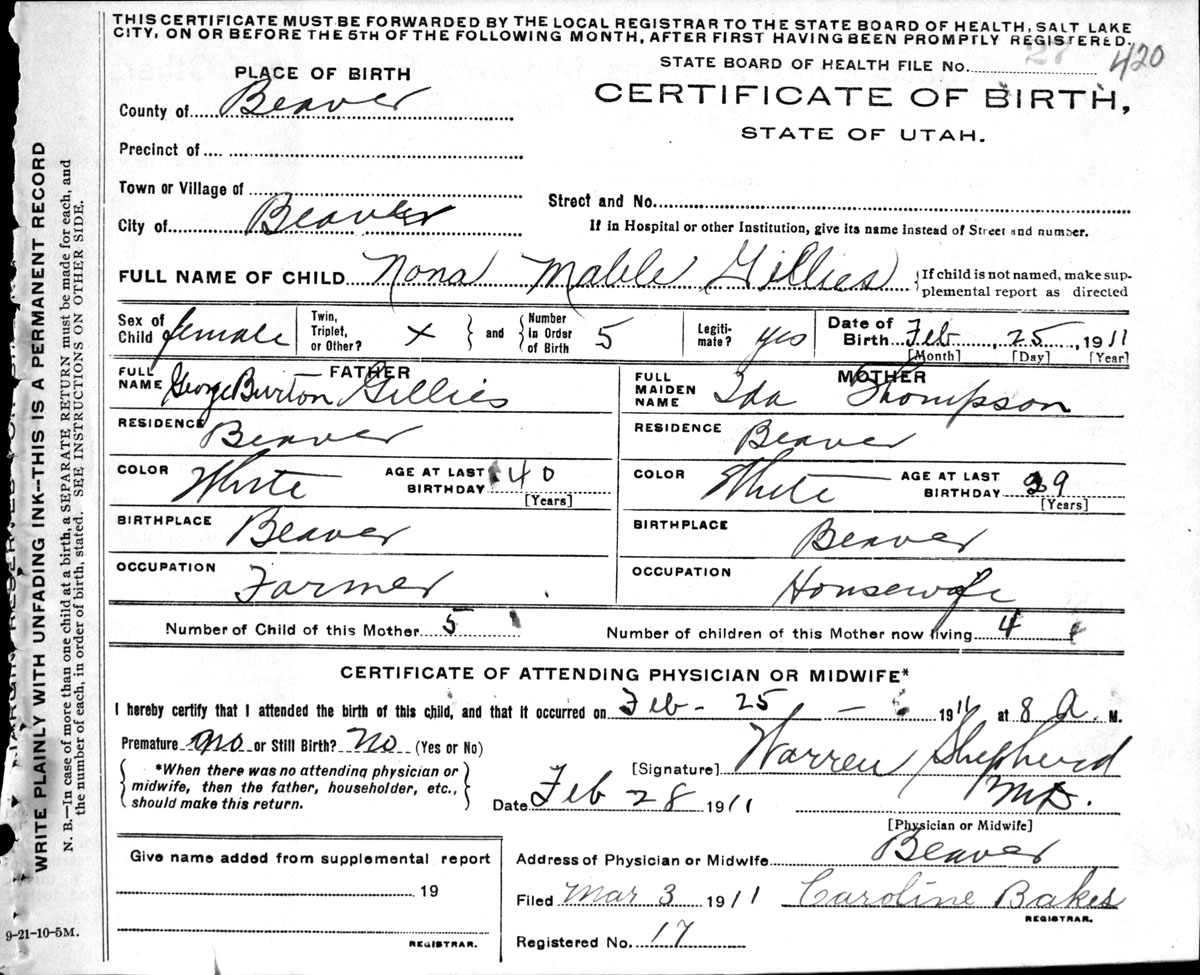 THIS CERTIFICATE MUST BE FORWARDED BY THE LOCAL REGISTRAR TO THE STATE BOARD OF HEALTH, SALT LAKE
CITY, ON OR BEFORE THE 5TH OF THE FOLLOWING MONTH, AFTER FIRST HAVING BEEN PROMPTLY REGISTERED.
STATE BOARD OF HEALTH FILE No. 27 420
PLACE OF BIRTH
CERTIFICATE OF BIRTH,
STATE OF UTAH.
County of Beaver
Precinct of
Town or Village of
City of Beaver
Street and No.
If in Hospital or other Institution, give its name instead of Street and number.
FULL NAME OF CHILD Nona Mable Gillies {If child is not named, make sup-
plemental report as directed
Sex of Child female
Twin, Triplet, or Other? X } and { Number in Order of Birth 5
Legiti-mate? yes
Date of Birth Feb 25, 1911
[Month] [Day] [Year]
FATHER
FULL NAME George Burton Gillies
RESIDENCE Beaver
COLOR White AGE AT LAST BIRTHDAY 40
[Years]
BIRTHPLACE Beaver
OCCUPATION Farmer
MOTHER
FULL MAIDEN NAME Ida Thompson
RESIDENCE Beaver
COLOR White AGE AT LAST BIRTHDAY 39
[Years]
BIRTHPLACE Beaver
OCCUPATION Housewife
Number of Child of this Mother 5 Number of children of this Mother now living 4
CERTIFICATE OF ATTENDING PHYSICIAN OR MIDWIFE*
I hereby certify that I attended the birth of this child, and that it occurred on Feb - 25 - 1911 at 8 A. M.
Premature no or Still Birth? No (Yes or No)
{*When there was no attending physician or
midwife, then the father, householder, etc.,
should make this return.}
[Signature] Warren Shepherd
M.D.
Date Feb 28 1911
[Physician or Midwife]
Address of Physician or Midwife Beaver
Filed Mar 3 1911 Caroline Bakes
REGISTRAR.
Registered No. 17
Give name added from supplemental report
19
REGISTRAR.
WRITE PLAINLY WITH UNFADING INK--THIS IS A PERMANENT RECORD
N. B.—In case of more than one child at a birth, a SEPARATE RETURN must be made for each, and
the number of each, in order of birth, stated. SEE INSTRUCTIONS ON OTHER SIDE.
9-21-10-5M.